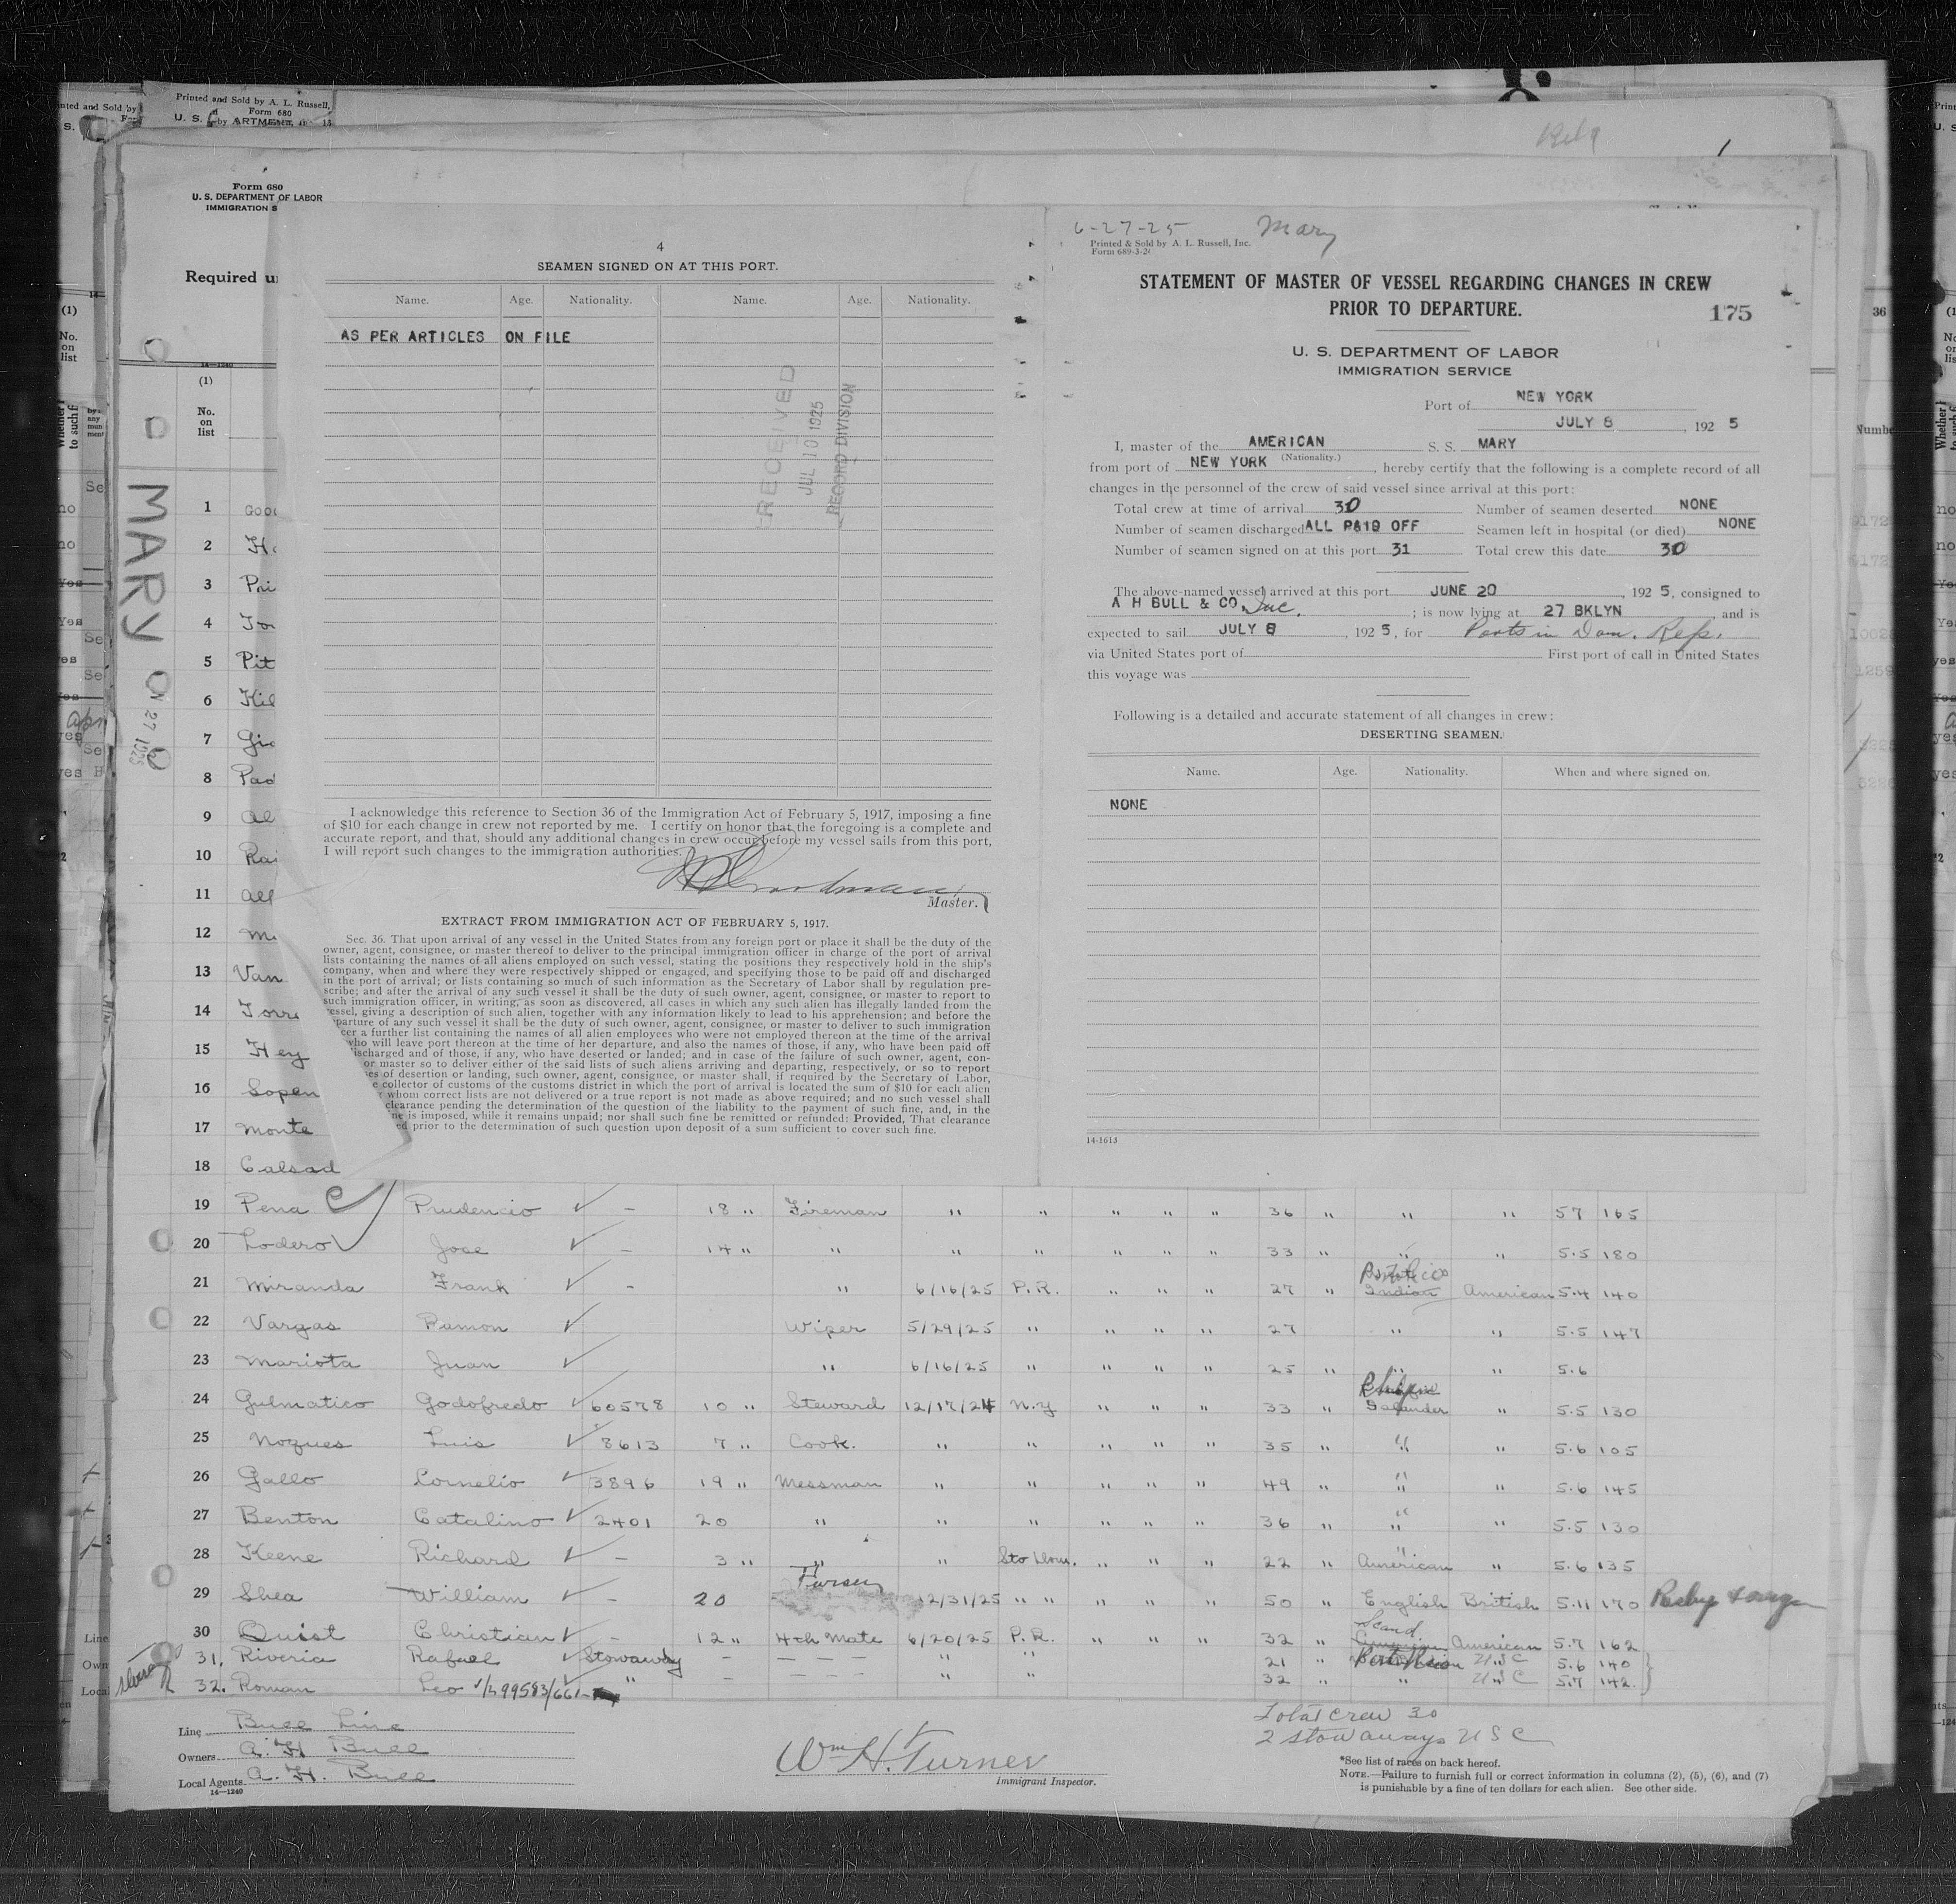 Printed and Sold by A. L. Russell,
Form 680
Form 680
U. S. DEPARTMENT OF LABOR
IMMIGRATION S
Required u
14—1240
(1)
No.
on
list
MARY
1 Good
2 Ha
3 Pri
4 Tor
5 Pit
6 Kil
7 Gio
8 Pad
9 Al
10 Rai
11 All
12 M
13 Van
14 Torr
15 Hey
16 Sopen
17 Monte
18 Calsad
4
SEAMEN SIGNED ON AT THIS PORT.
Name. Age. Nationality. Name. Age. Nationality.
AS PER ARTICLES ON FILE
RECEIVED
JUL 10 1925
RECORD DIVISION
I acknowledge this reference to Section 36 of the Immigration Act of February 5, 1917, imposing a fine
of $10 for each change in crew not reported by me. I certify on honor that the foregoing is a complete and
accurate report, and that, should any additional changes in crew occur before my vessel sails from this port,
I will report such changes to the immigration authorities.
Master.
EXTRACT FROM IMMIGRATION ACT OF FEBRUARY 5, 1917.
Sec. 36. That upon arrival of any vessel in the United States from any foreign port or place it shall be the duty of the
owner, agent, consignee, or master thereof to deliver to the principal immigration officer in charge of the port of arrival
lists containing the names of all aliens employed on such vessel, stating the positions they respectively hold in the ship's
company, when and where they were respectively shipped or engaged, and specifying those to be paid off and discharged
in the port of arrival; or lists containing so much of such information as the Secretary of Labor shall by regulation pre-
scribe; and after the arrival of any such vessel it shall be the duty of such owner, agent, consignee, or master to report to
such immigration officer, in writing, as soon as discovered, all cases in which any such alien has illegally landed from the
vessel, giving a description of such alien, together with any information likely to lead to his apprehension; and before the
parture of any such vessel it shall be the duty of such owner, agent, consignee, or master to deliver to such immigration
cer a further list containing the names of all alien employees who were not employed thereon at the time of the arrival
who will leave port thereon at the time of her departure, and also the names of those, if any, who have been paid off
ischarged and of those, if any, who have deserted or landed; and in case of the failure of such owner, agent, con-
or master so to deliver either of the said lists of such aliens arriving and departing, respectively, or so to report
es of desertion or landing, such owner, agent, consignee, or master shall, if required by the Secretary of Labor,
e collector of customs of the customs district in which the port of arrival is located the sum of $10 for each alien
whom correct lists are not delivered or a true report is not made as above required; and no such vessel shall
clearance pending the determination of the question of the liability to the payment of such fine, and, in the
ne is imposed, while it remains unpaid; nor shall such fine be remitted or refunded: Provided, That clearance
ed prior to the determination of such question upon deposit of a sum sufficient to cover such fine.
6-27-25 Mary
Printed & Sold by A. L. Russell, Inc.
Form 689-3-2
STATEMENT OF MASTER OF VESSEL REGARDING CHANGES IN CREW
PRIOR TO DEPARTURE.
175
U. S. DEPARTMENT OF LABOR
IMMIGRATION SERVICE
Port of NEW YORK
JULY 8, 192 5
I, master of the AMERICAN S. S. MARY
(Nationality.)
from port of NEW YORK, hereby certify that the following is a complete record of all
changes in the personnel of the crew of said vessel since arrival at this port:
Total crew at time of arrival 30 Number of seamen deserted NONE
Number of seamen discharged ALL PAID OFF Seamen left in hospital (or died) NONE
Number of seamen signed on at this port 31 Total crew this date 30
The above-named vessel arrived at this port JUNE 20, 192 5, consigned to
A H BULL & CO, Inc. ; is now lying at 27 BKLYN, and is
expected to sail JULY 8, 192 5, for Ports in Dom. Rep.
via United States port of First port of call in United States
this voyage was
Following is a detailed and accurate statement of all changes in crew:
DESERTING SEAMEN.
Name. Age. Nationality. When and where signed on.
NONE
14-1613
19 Pena Prudencio ✓ – 18 " Fireman " " " " " 36 " " " 57 165
20 Lodero Jose ✓ – 14 " " " " " " " 33 " " " 5.5 180
21 Miranda Frank ✓ – " 6/16/25 P.R. " " " 27 " Indian American 5.4 140
22 Vargas Ramon ✓ Wiper 5/29/25 " " " " 27 " " 5.5 147
23 Mariota Juan ✓ " 6/16/25 " " " " 25 " " " 5.6
24 Gulmatico Godofredo ✓ 60578 10 " Steward 12/17/24 N.Y " " " 33 " " 5.5 130
25 Nozues Luis ✓ 8613 7 " Cook. " " " " " 35 " " " 5.6 105
26 Gallo Cornelio ✓ 3896 19 " Messman " " " " " 49 " " " 5.6 145
27 Benton Catalino ✓ 2401 20 " " " " " " 36 " " " 5.5 130
28 Keene Richard ✓ – 3 " " " Sto Dom. " " " 22 " American " 5.6 135
29 Shea William ✓ – 20 Purser 12/31/25 " " " " " 50 " English British 5.11 170
30 Quist Christian ✓ – 12 " 4th Mate 6/20/25 P.R. " " " 32 " Scand. American 5.7 162
31. Riveria Rafael Stowaway – – – – " " 21 " USC 5.6 140
32. Roman Leo " – – – – " " 32 " " USC 5.7 142
Line Bull Line
Owners A. H Bull
Local Agents A. H. Bull
14—1240
Wm H. Turner
Immigrant Inspector.
Total crew 30
2 stowaways USC
*See list of races on back hereof.
NOTE.—Failure to furnish full or correct information in columns (2), (5), (6), and (7)
is punishable by a fine of ten dollars for each alien. See other side.